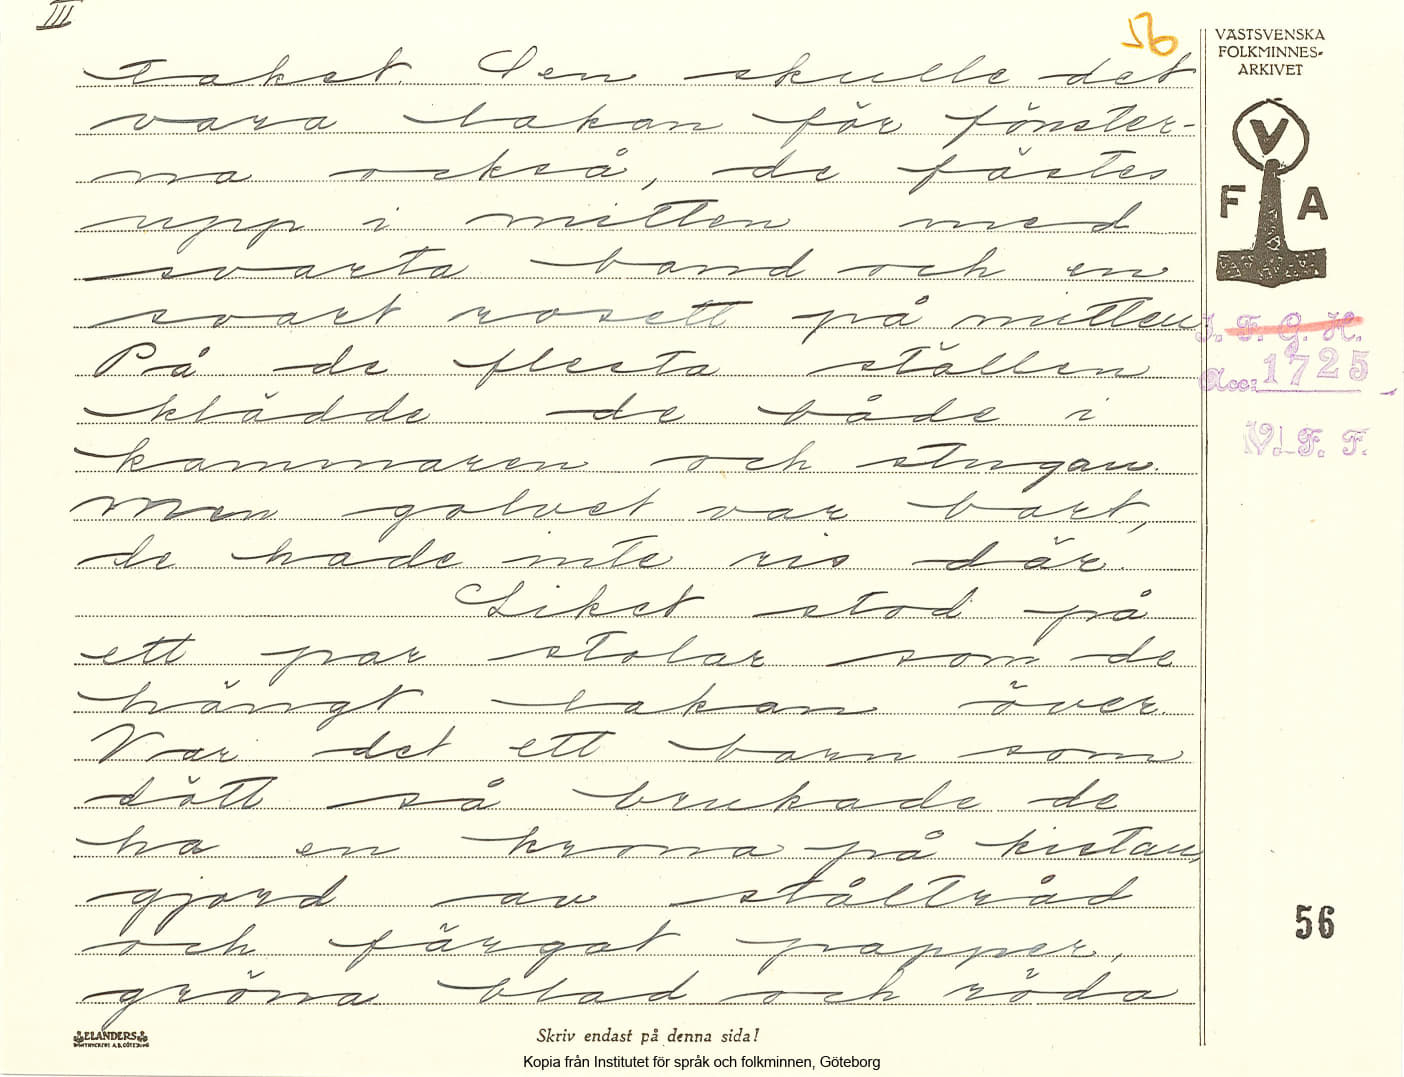 III
56
VÄSTSVENSKA
FOLKMINNES-
ARKIVET
V
F A
I. F. G. H.
Acc: 1725
V. F. F.
taket. Sen skulle det
vara lakan för fönster-
na också, de fästes
upp i mitten med
svarta band och en
svart rosett på mitten
På de flesta ställen
klädde de både i
kammaren och stugan.
Men golvet var bart,
de hade inte ris där.
Liket stod på
ett par stolar som de
hängt lakan över.
Var det ett barn som
dött så brukade de
ha en krona på kistan,
gjord av ståltråd
och färgat papper,
gröna blad och röda
56
ELANDERS
Skriv endast på denna sida!
Kopia från Institutet för språk och folkminnen, Göteborg